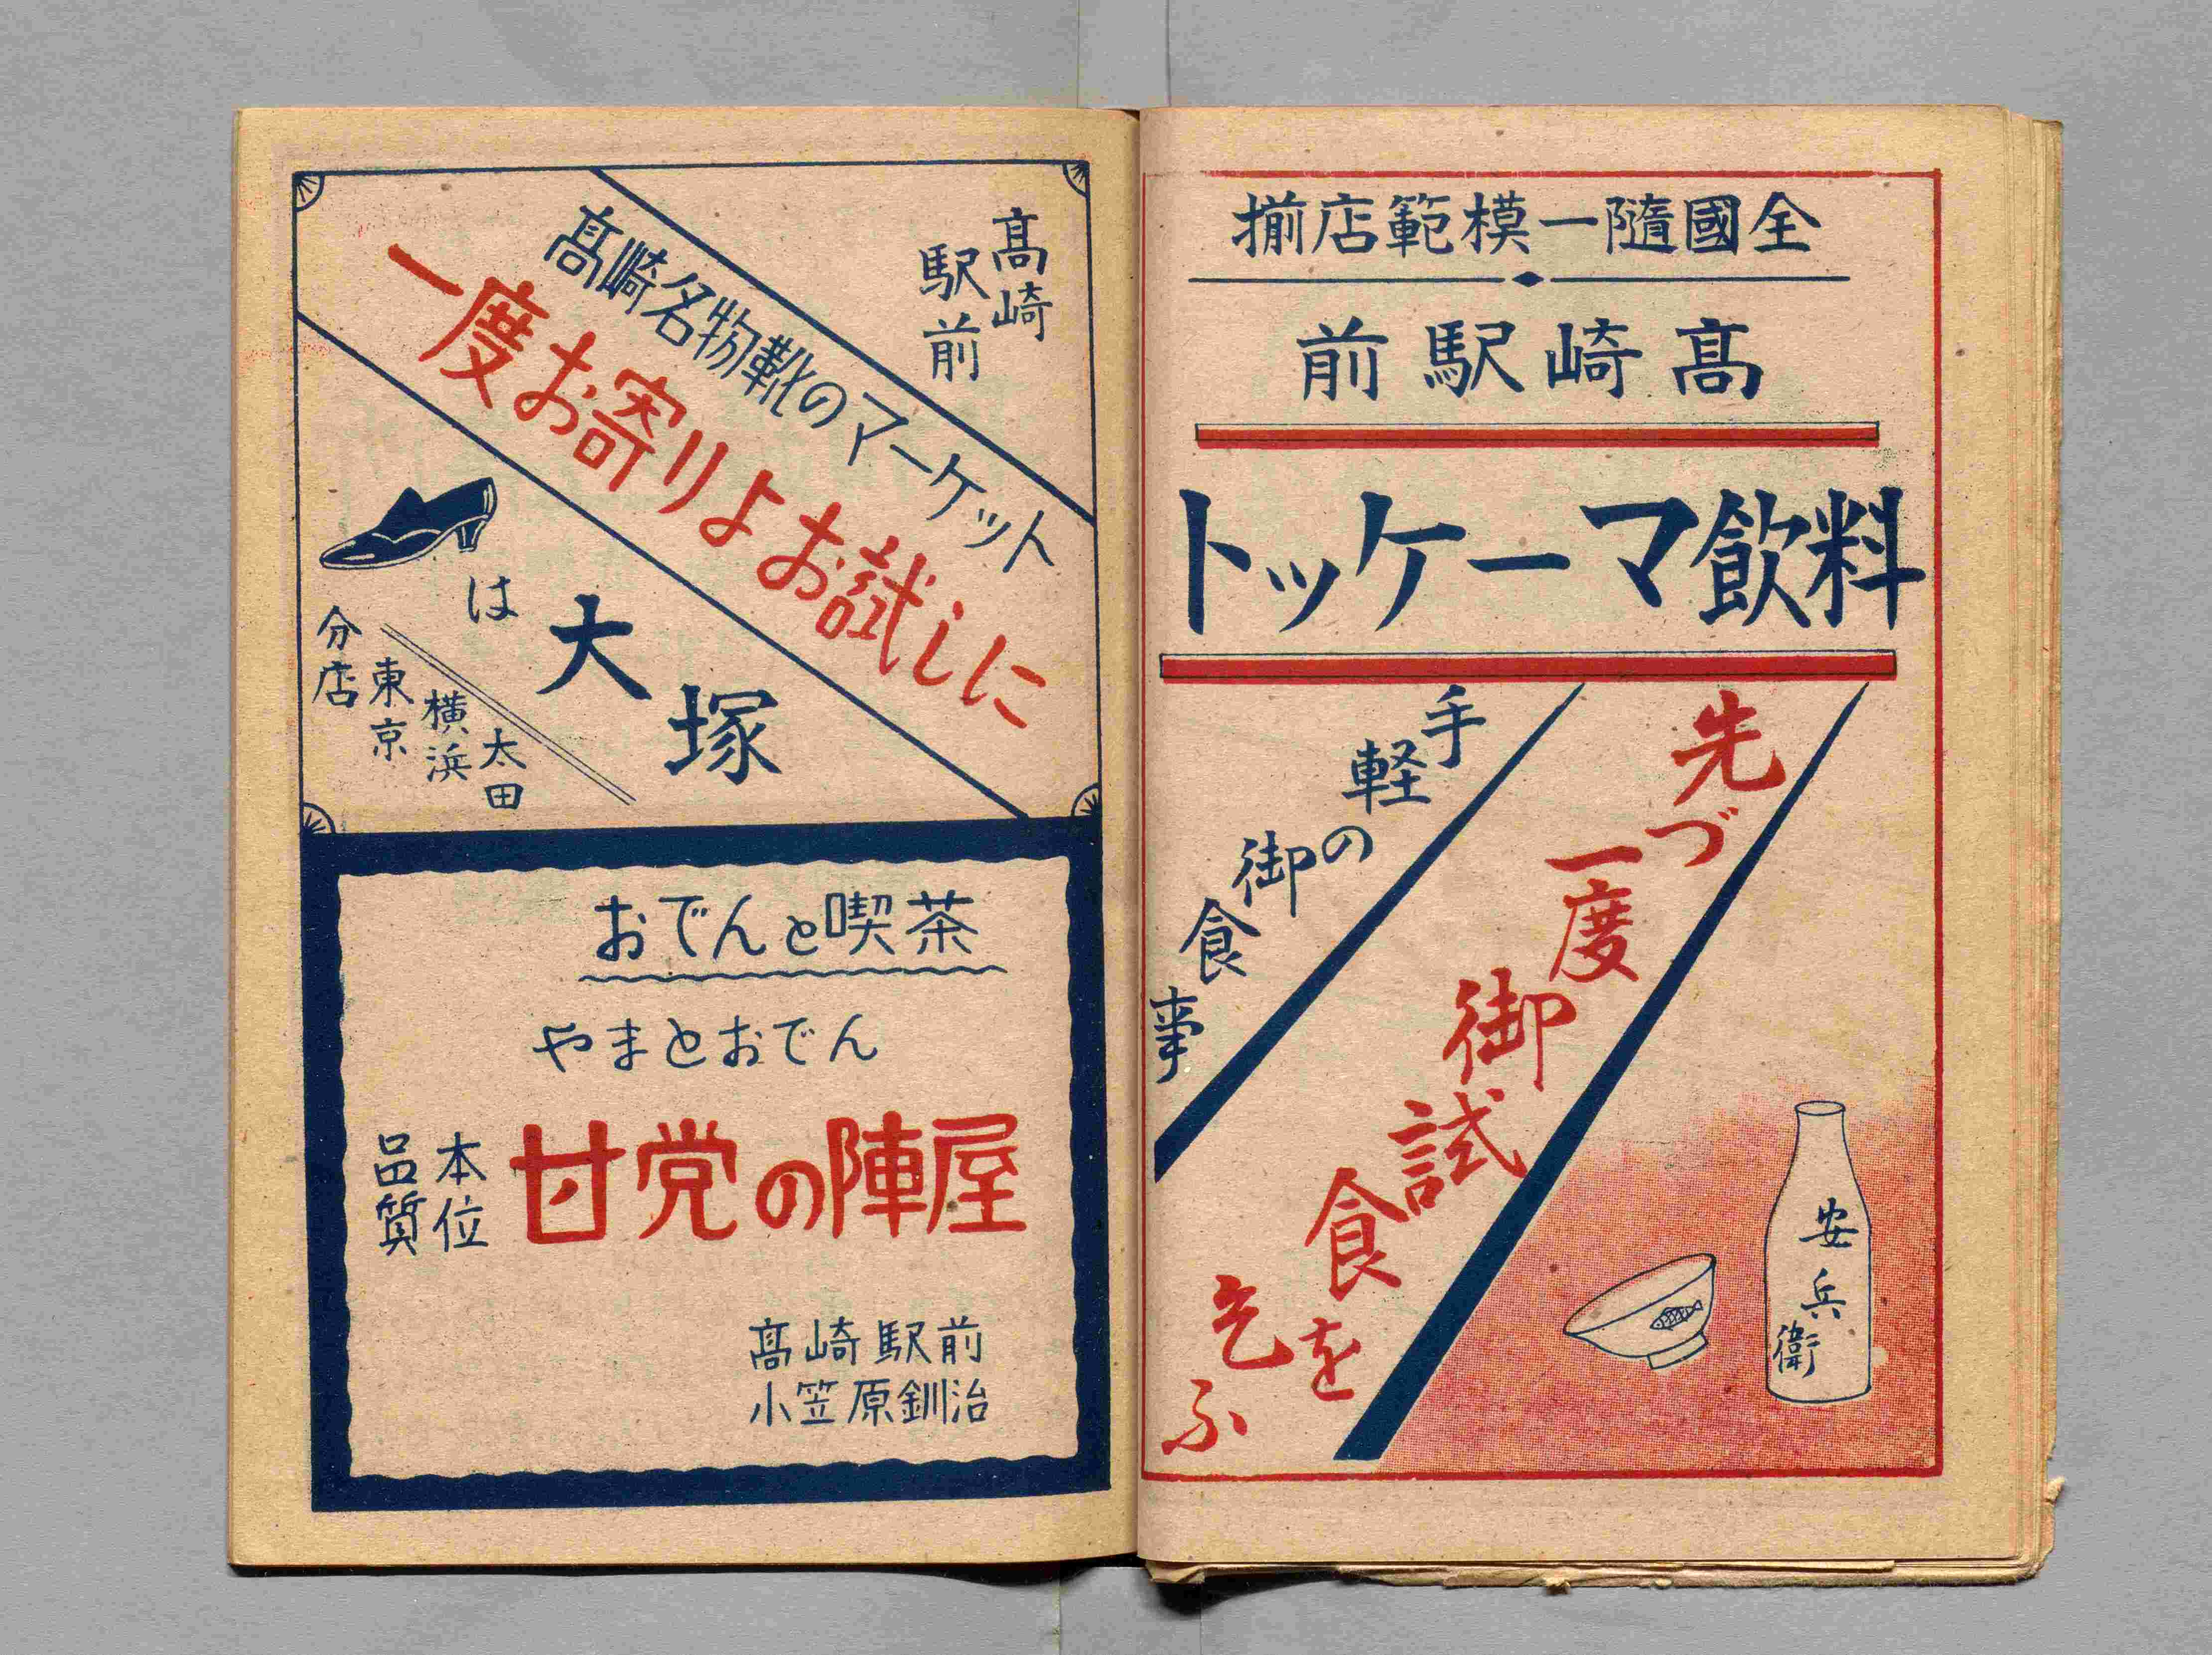 全國隨一模範店揃
髙崎駅前
料飲マーケット
先づ一度御試食を乞ふ
手軽の御食事
安兵衛
髙崎
駅前
髙崎名物靴のマーケット
一度お寄りよお試しに
は大塚
太田
横浜
東京
分店
おでんと喫茶
やまとおでん
品質
本位
甘党の陣屋
髙崎駅前
小笠原釧治